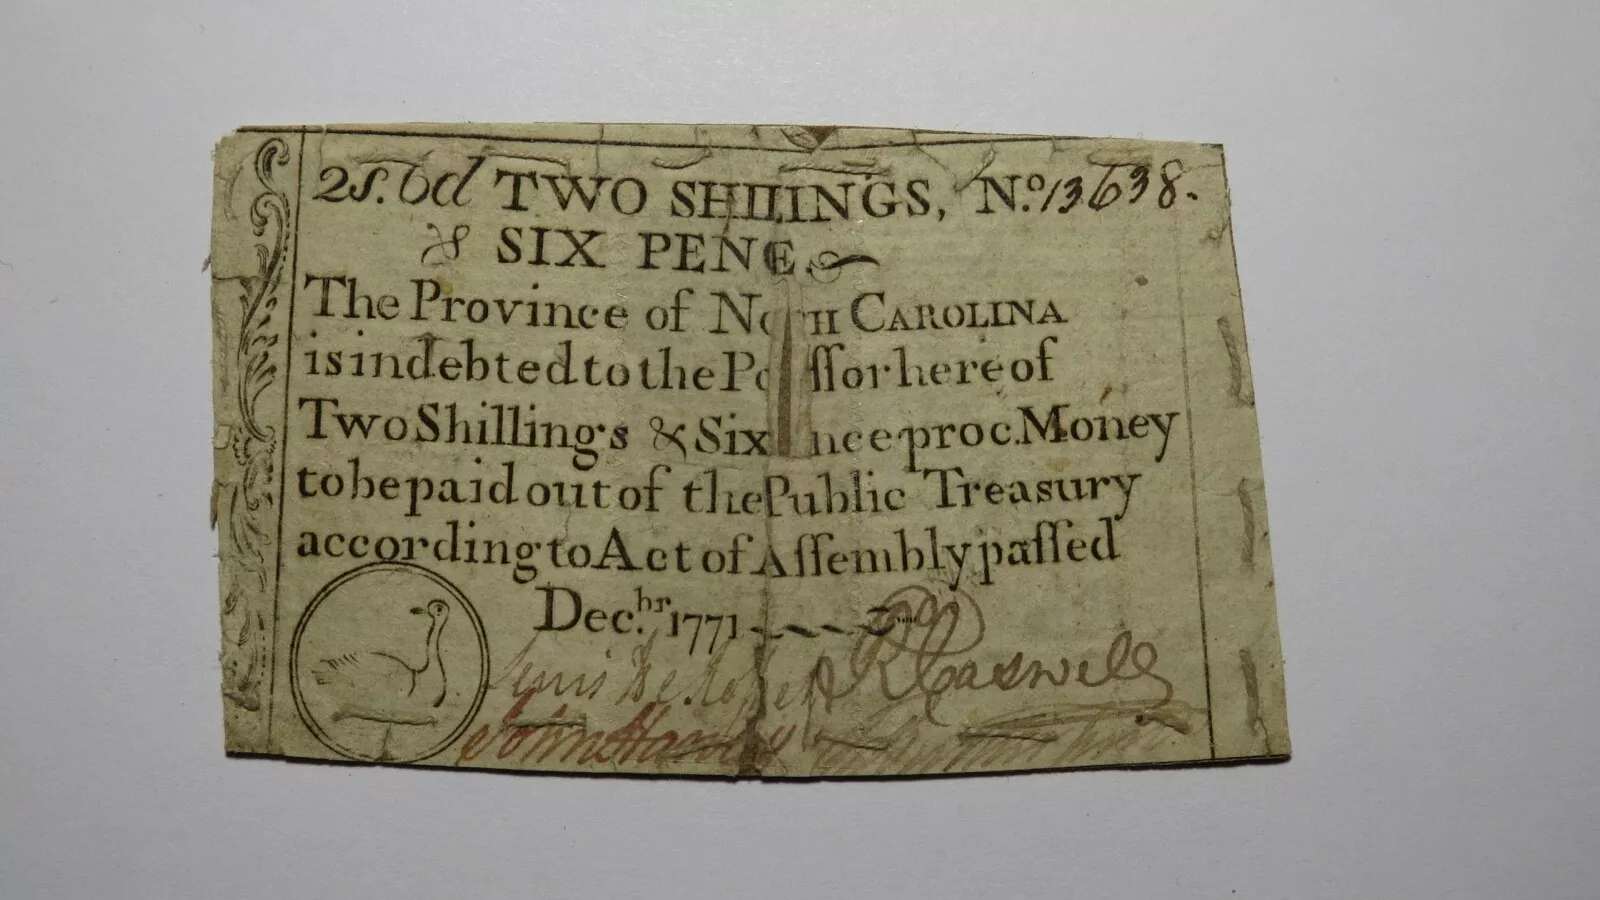 2s. 6d TWO SHILLINGS, No. 13638.
& SIX PENE
The Province of No H CAROLINA
is indebted to the Po ſſor here of
Two Shillings & Six nce proc. Money
to be paid out of the Public Treasury
according to Act of Aſſembly paſſed
Dec.br 1771
Lewis De Rosset R Caswell
John Harvey